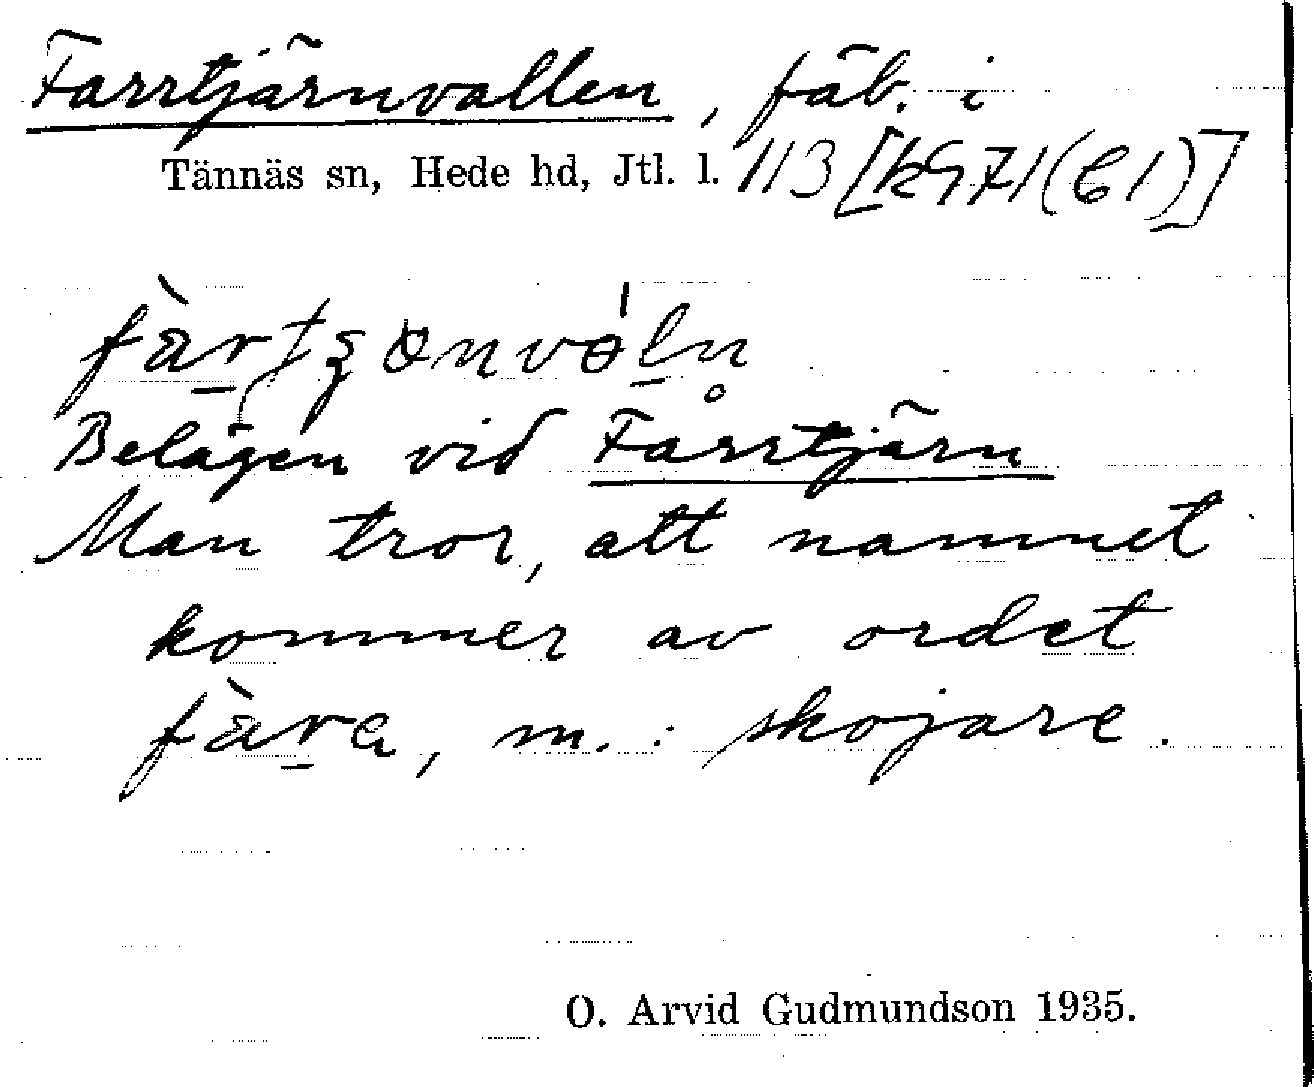 Farrtjärnvallen, fäb. i
Tännäs sn, Hede hd, Jtl. l. 113 [k971(61)]
Belägen vid Farrtjärn
Man tror, att namnet
kommer av ordet
fàra, m. : skojare.
O. Arvid Gudmundson 1935.